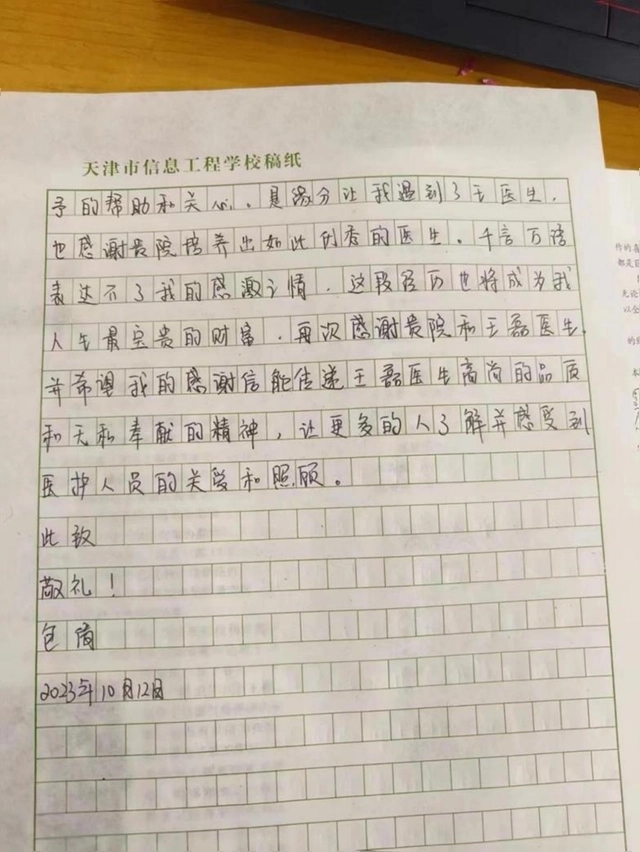 天津市信息工程学校稿纸
予的帮助和关心。是缘分让我遇到了王医生，
也感谢贵院培养出如此优秀的医生。千言万语
表达不了我的感激之情，这段经历也将成为我
人生最宝贵的财富，再次感谢贵院和王磊医生，
并希望我的感谢信能传递王磊医生高尚的品质
和无私奉献的精神，让更多的人了解并感受到
医护人员的关爱和照顾。
此致
敬礼！
2023年10月12日